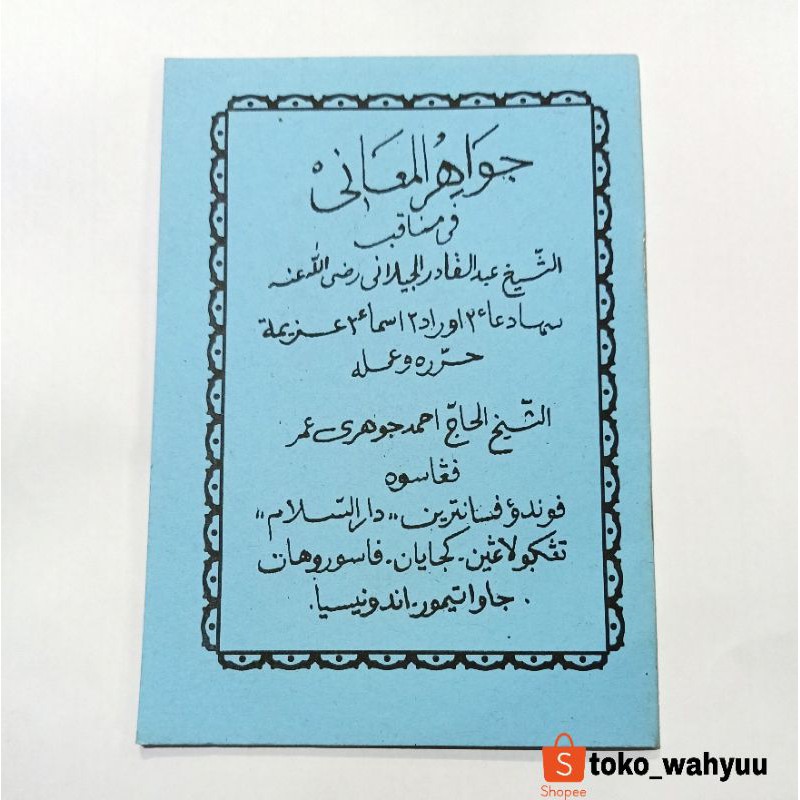 جَوَاهِرُ المَعَانِى
فى مناقب
الشّيخ عبد القادر الجيلانى رضى الله عنه
سرتا دعاء٢ اوراد٢ اسماء٢ عزيمة
حرّره وعمله
الشّيخ الحاجّ احمد جوهرى عمر
فڠاسوه
فوندؤ فسانترين ،،دار السّلام،،
تڠكولاڠين - كجايان - فاسوروهان
جاوا تيمور - اندونيسيا.
S
Shopee
toko_wahyuu